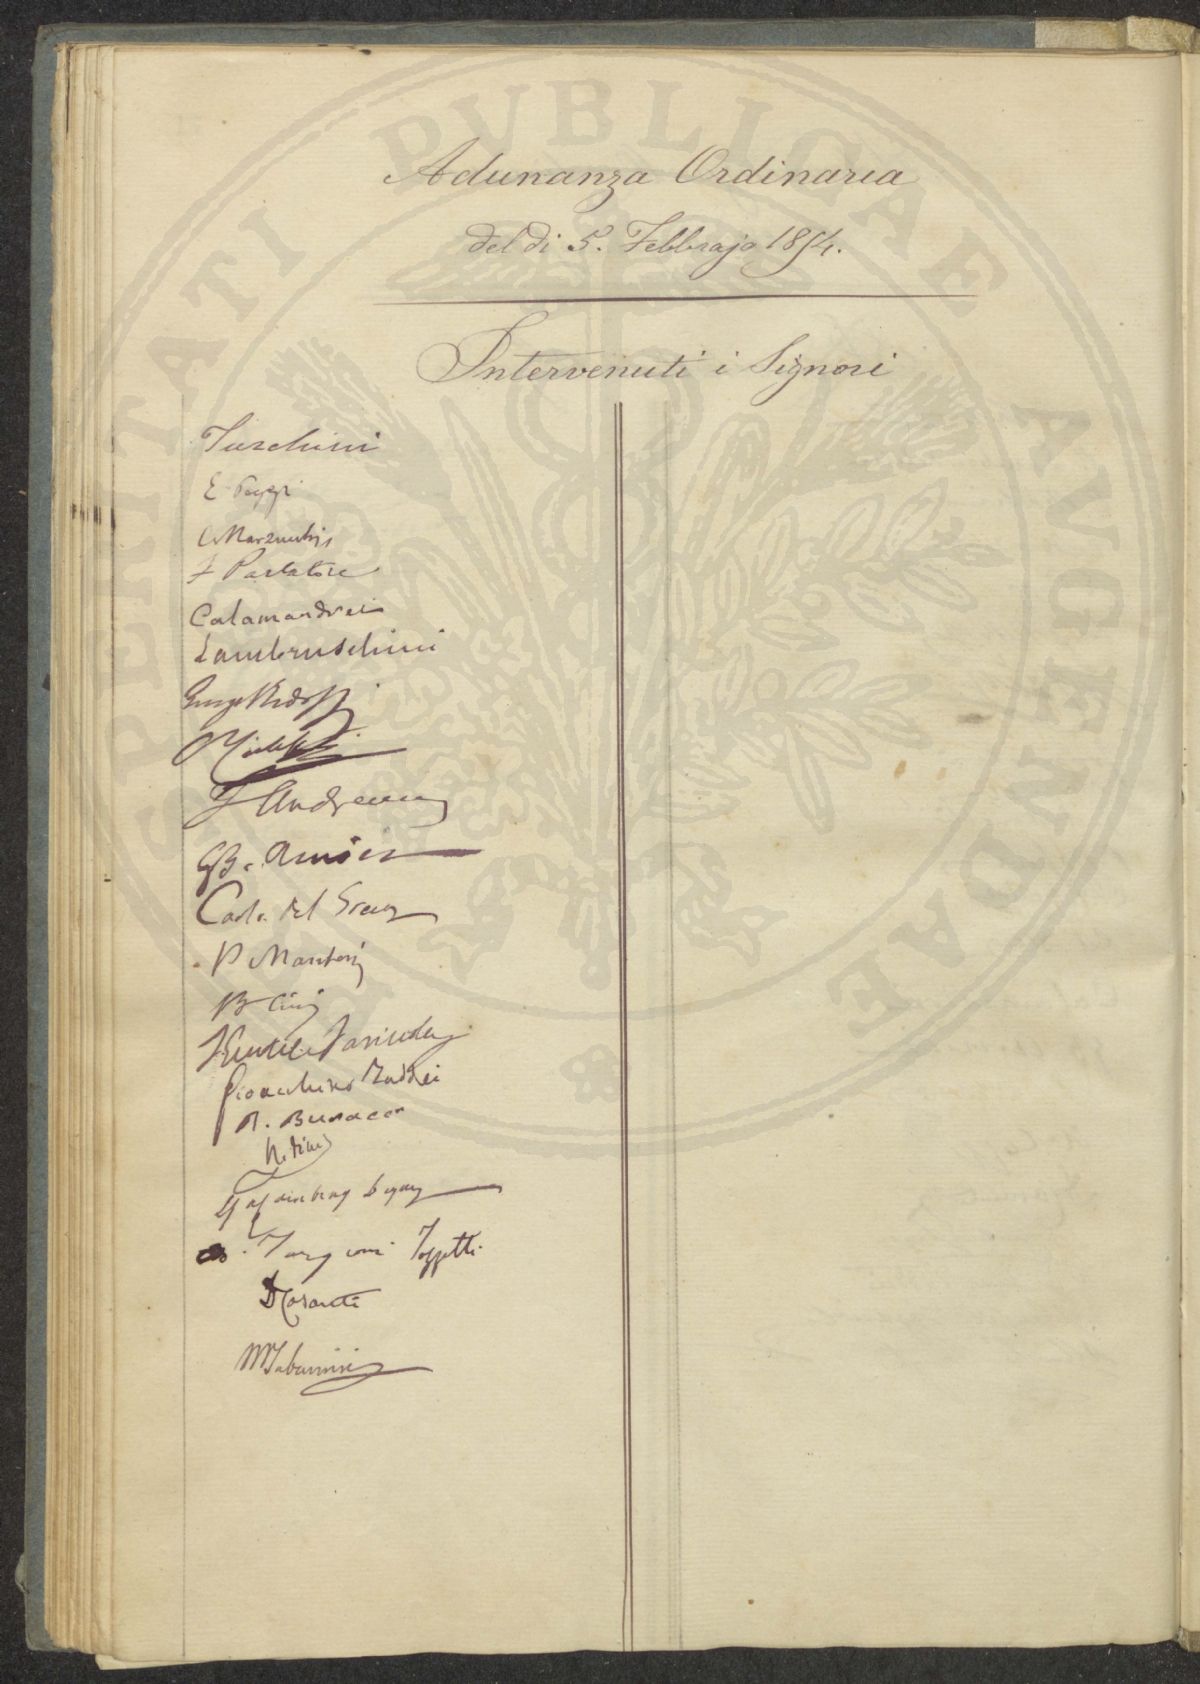 Adunanza Ordinaria
del di 5. Febbrajo 1854.
Intervenuti i Signori
Tuschini
E Poggi
C Marzucchi
F Parlatore
Calamandrei
Lambruschini
Enrgo Ridolfi
F Andreucci
GB. Amici
Carlo del Greco
P Mantovi
B Cini
Gioacchino Taddei
A. Bunacco
Targioni Tozzetti
D Casanti
M Tabarrini
PROSPERITATI PUBLICAE AUGENDAE